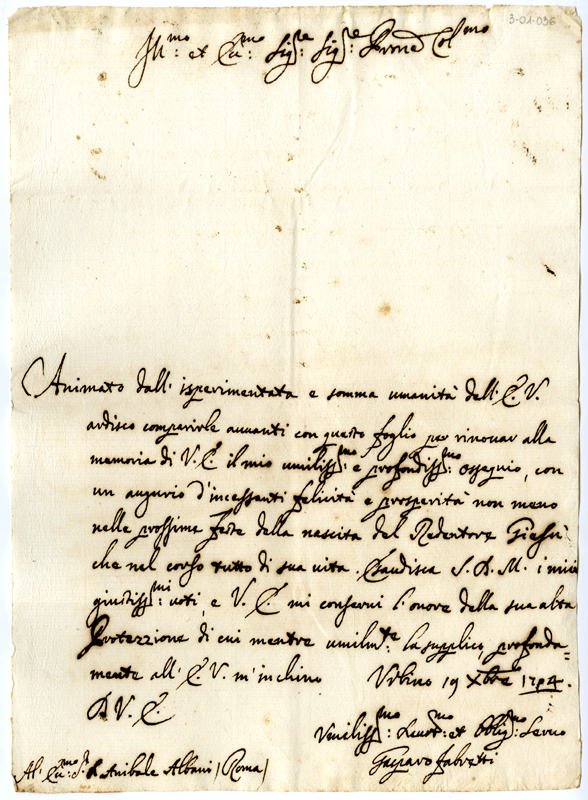 3-01-036
Ill:mo et Ecc:mo Sig:re Sig:re Prone Col:mo
Animato dall' isperimentata e somma umanità dell' E. V.
ardisco comparirle avvanti con questo foglio per rinovar alla
memoria di V. E. il mio umiliss:mo e profondiss:mo ossequio, con
un augurio d'incessanti felicità e prosperità non meno
nelle prossime feste della nascita del Redentore Giesù
che nel corso tutto di sua vita. Esaudisca S. D. M. i miei
giustiss:mi voti, e V. E. mi conservi l'onore della sua alta
Protezzione di cui mentre umilm:te la supplico, profonda=
mente all' E. V. m'inchino Urbino 19 Xbre
D V. E.
Umiliss:mo Devot:mo et Obblig:mo Servo
Gasparo Fabretti
Al: Ecc:mo S: D Anibale Albani (Roma)